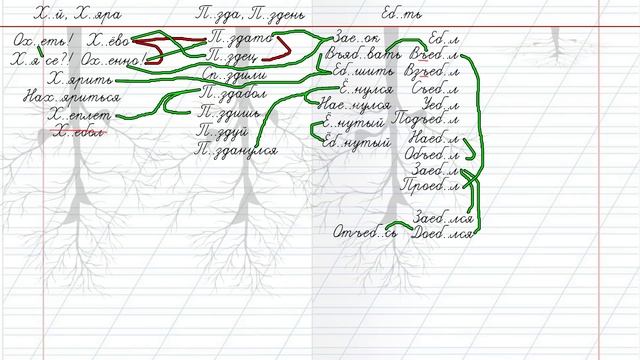 Х..й, Х..яра П..зда, П..здень Еб..ть
Ох..еть! Х..ёво П..здато Зае..ок Еб..л
Х..я се?! Ох..енно! П..здец Въяб..вать Въеб..л
Х..ярить Сп..здили Еб..шить Взъеб..л
Нах..яриться П..здабол Ё..нулся Съеб..л
Х..еплет П..здишь Нае..нулся Уеб..л
Х..ебол П..здуй Ё..нутый Подъеб..л
П..зданулся Ёб..нутый Наеб..л
Объеб..л
Заеб..л
Проеб..л
Заеб..лся
Отъеб..сь Доеб..лся